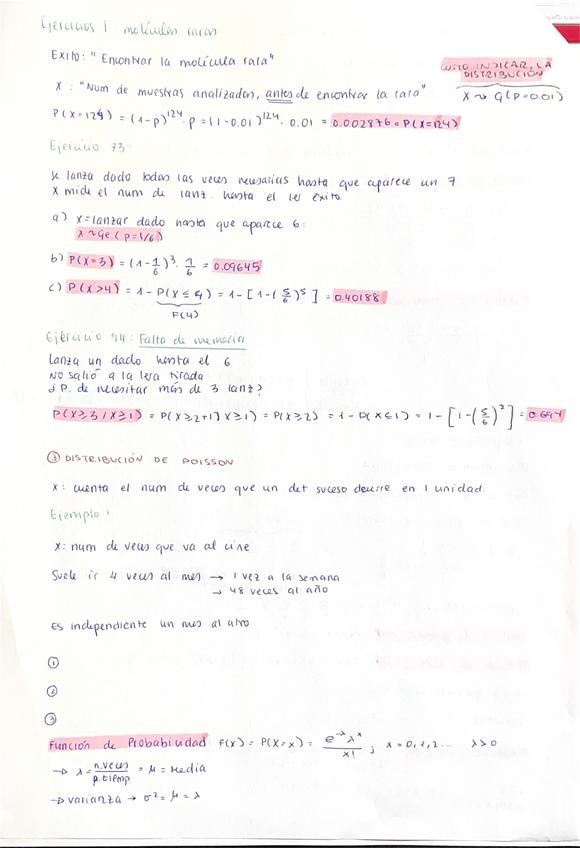 Ejercicios 1 moléculas raras
Exito: "Encontrar la molécula rara"
COMO INDICAR LA DISTRIBUCIÓN
X : "Num de muestras analizadas, antes de encontrar la rara"
X ~ G(P=0.01)
P(X=124) = (1-p)^124 · p = (1-0.01)^124 · 0.01 = 0.002876 = P(X=124)
Ejercicio 73:
Se lanza dado todas las veces necesarias hasta que aparece un 7
X mide el num de lanz. hasta el 1er éxito
a) X = lanzar dado hasta que aparce 6:
X ~ Ge (p=1/6)
b) P(X=3) = (1-1/6)^3 · 1/6 = 0.09645
c) P(X>4) = 1 - P(X≤4) = 1 - [1-(5/6)^5] = 0.40188
F(4)
Ejercicio 74: Falta de memoria
Lanza un dado hasta el 6
No salió a la 1era tirada
¿P. de necesitar más de 3 lanz?
P(X≥3/X≥1) = P(X≥2+1|X≥1) = P(X≥2) = 1 - P(X≤1) = 1 - [1-(5/6)^2] = 0.694
③ DISTRIBUCIÓN DE POISSON
X: cuenta el num de veces que un det suceso ocurre en 1 unidad.
Ejemplo 1
X: num de veces que va al cine
Suele ir 4 veces al mes → 1 vez a la semana
→ 48 veces al año
Es independiente un mes al otro
①
②
③
Función de Probabilidad: f(x) = P(X=x) = e^-λ λ^x / x! ; x=0,1,2... λ>0
→ λ = n.veces / p.tiemp = μ = Media
→ varianza → σ² = μ = λ